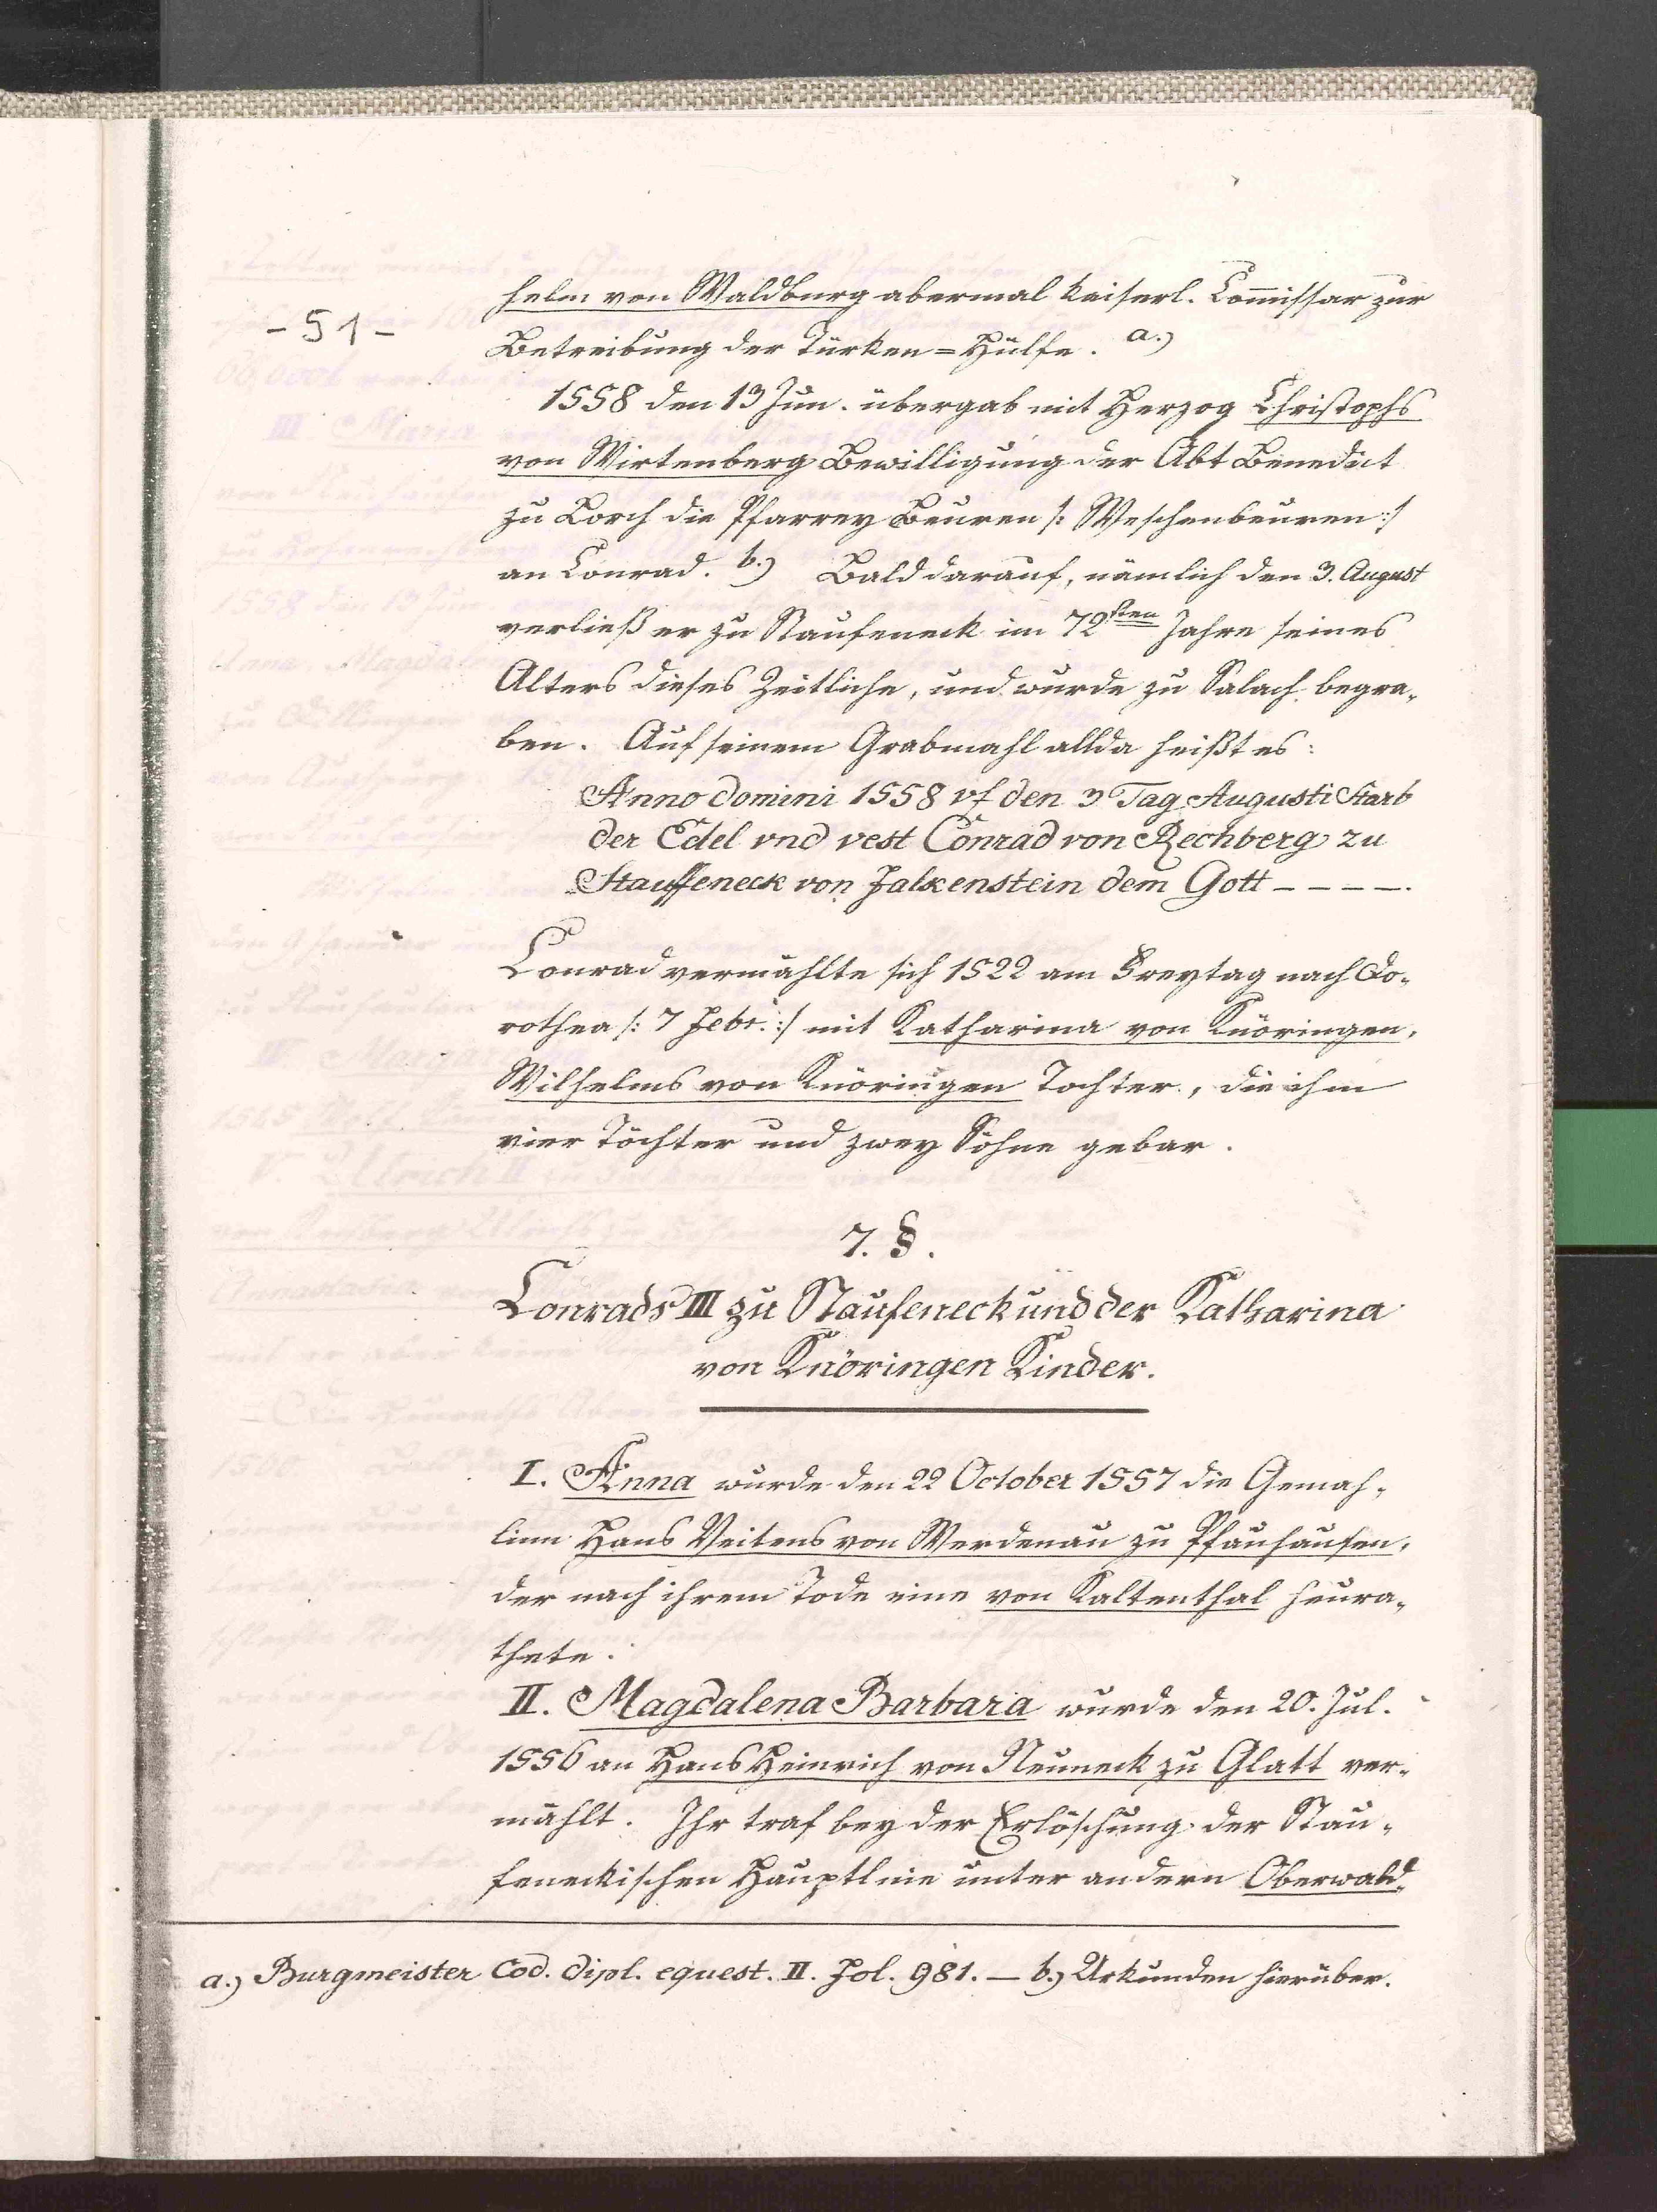 - 51 -
helm von Waldburg abermal kaiserl. Com̄issar zur
Betreibung der Türken=Hülfe. a.)
1558 den 13 Jun. übergab mit Herzog Christophs
von Wirtenberg Bewilligung der Abt Benedict
zu Lorch die Pfarrey Beuren /: Weschenbeuren :/
an Conrad. b.) Bald darauf, nämlich den 3. August
verließ er zu Staufeneck im 72sten Jahre seines
Alters dieses Zeitliche, und wurde zu Salach begra-
ben. Auf seinem Grabmahl allda heißt es:
Anno domini 1558 vf den 3 Tag Augusti Starb
der Edel vnd vest Conrad von Rechberg zu
Stauffeneck von Falkenstein dem Gott - - - -.
Conrad vermählte sich 1522 am Freytag nach Do-
rothea /: 7 Febr. :/ mit Katharina von Knöringen,
Wilhelms von Knöringen Tochter, die ihm
vier Töchter und zwey Söhne gebar.
7. §.
Conrads III zu Staufeneck und der Katharina
von Knöringen Kinder.
I. Anna wurde den 22 October 1557 die Gemah-
linn Hans Veitens von Werdenau zu Pfauhausen,
der nach ihrem Tode eine von Kaltenthal heura-
thete.
II. Magdalena Barbara wurde den 20. Jul.
1556 an Hans Heinrich von Neuneck zu Glatt ver-
mählt. Ihr traf bey der Erlöschung der Stau-
feneckischen Hauptlinie unter andern Oberwald-
a.) Burgmeister Cod. dipl. equest. II. Fol. 981. — b.) Urkunden hierüber.